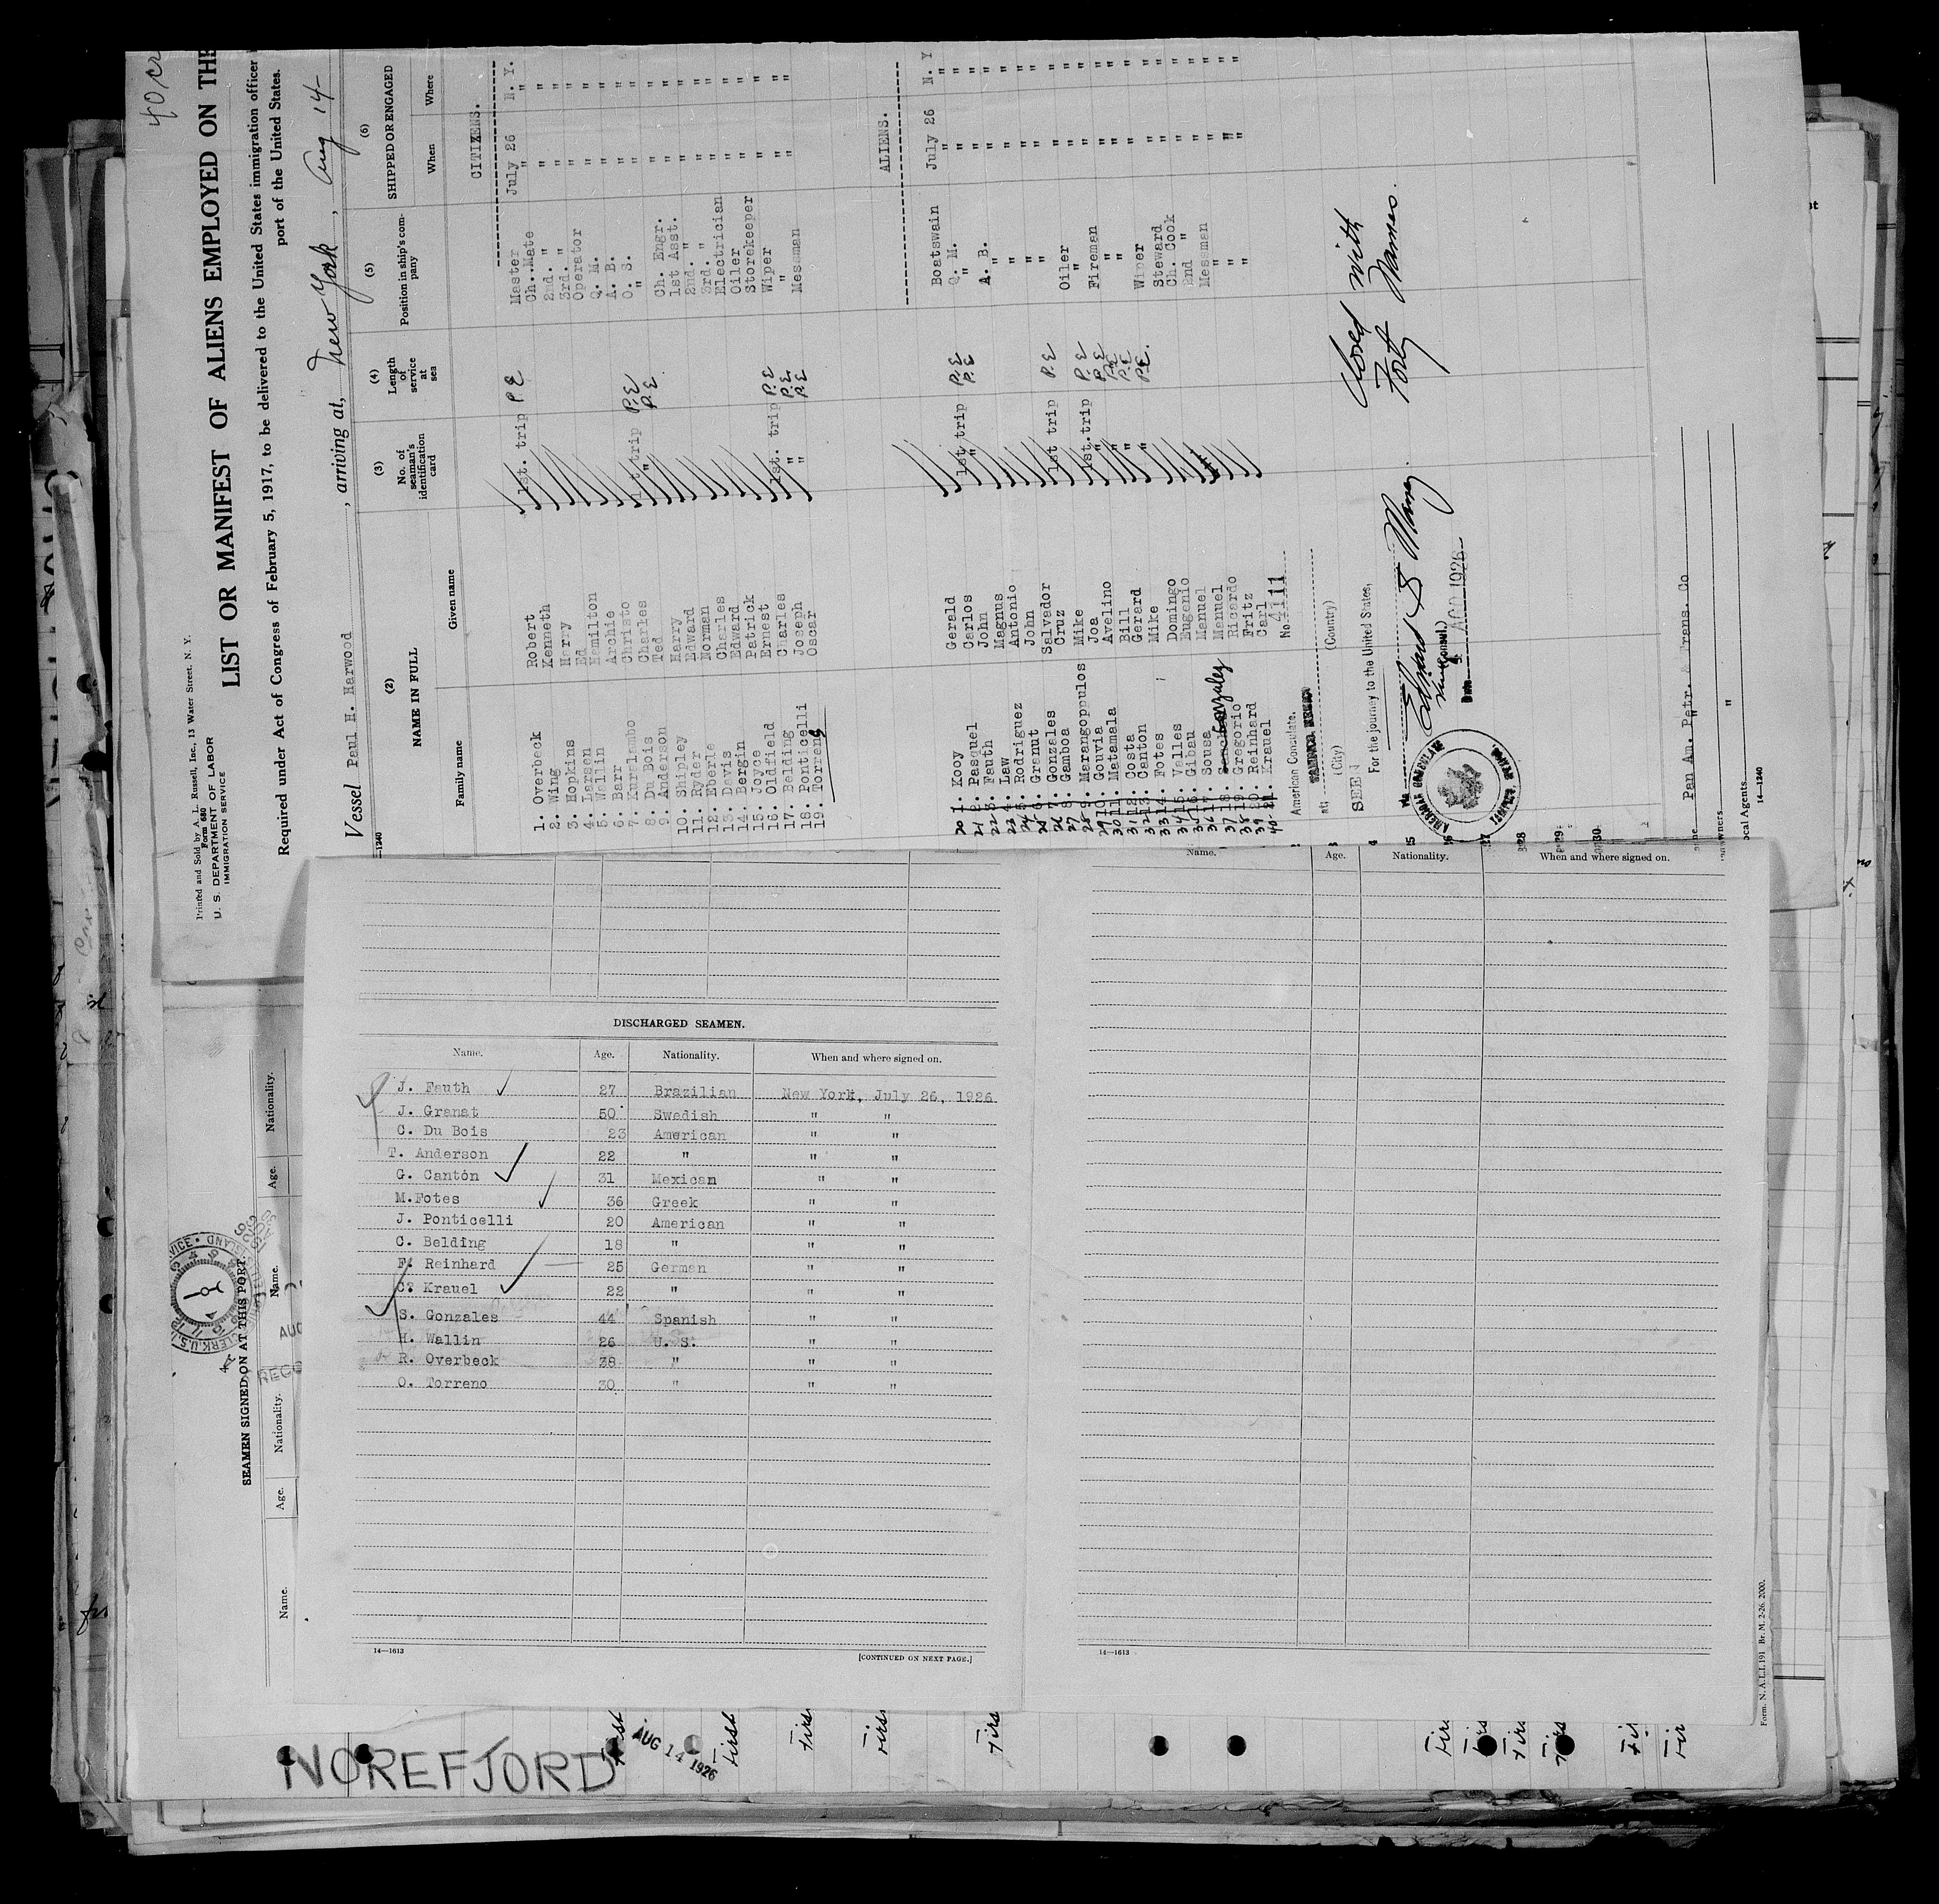 40 cr
Printed and Sold by A. I. Russell, Inc., 13 Water Street. N. Y.
Form 680
U. S. DEPARTMENT OF LABOR
IMMIGRATION SERVICE
LIST OR MANIFEST OF ALIENS EMPLOYED ON THE
Required under Act of Congress of February 5, 1917, to be delivered to the United States immigration officer
port of the United States.
Vessel Paul H. Harwood, arriving at, New York, Aug 14
(2) (3) (4) (5) (6)
NAME IN FULL No. of seaman's identification card Length of service at sea Position in ship's company SHIPPED OR ENGAGED
Family name Given name When Where
CITIZENS.
1. Overbeck Robert 1st. trip P.E Master July 26 N. Y.
2. Wing Kenneth Ch. Mate " "
3. Hopkins Harry 2nd. " " "
4. Larsen Ed 3rd. " " "
5. Wallin Hamilton Operator " "
6. Barr Archie Q. M. " "
7. Kurrlambo Christo A. B. " "
8. Du Bois Charles 1st trip P.E O. S. " "
9. Anderson Ted " P.E " " "
10. Shipley Harry Ch. Engr. " "
11. Ryder Edward 1st Asst. " "
12. Eberle Norman 2nd. " " "
13. Davis Charles 3rd. " " "
14. Bergin Edward Electrician " "
15. Joyce Patrick Oiler " "
16. Oldfield Ernest Storekeeper " "
17. Belding Charles 1st. trip P.E Wiper " "
18. Ponticelli Joseph " P.E " " "
19. Torreno Oscar " P.E Messman " "
ALIENS.
20 1. Kooy Gerald Boatswain July 26 N. Y
21 2. Pasquel Carlos 1st trip P.E Q. M. " "
22 3. Fauth John " P.E " " "
23 4. Law Magnus A. B. " "
24 5. Rodriguez Antonio " " "
25 6. Granut John " " "
26 7. Gonzales Salvador " " "
27 8. Gamboa Cruz 1st trip P.E " " "
28 9. Marangopoulos Mike Oiler " "
29 10. Gouvia Joa 1st. trip P.E " " "
30 11. Matamala Avelino " P.E Fireman " "
31 12. Costa Bill " P.E " " "
32 13. Canton Gerard " P.E " " "
33 14. Fotes Mike " P.E. Wiper " "
34 15. Valles Domingo Steward " "
35 16. Gibau Eugenio Ch. Cook " "
36 17. Sousa Manuel 2nd " " "
37 18. Gonzalez Manuel Messman " "
38 19. Gregorio Ricardo " " "
39 20. Reinhard Fritz " " "
40 21. Krauel Carl " " "
American Consulate,
No. 4111
At
(City) (Country)
SEEN
For the journey to the United States,
Vice Consul.
Date AGO 1926
Closed with
Forty Names.
Pan Am. Petr. & Trans. Co
owners "
ocal Agents
14—1240
SEAMEN SIGNED ON AT THIS PORT.
Name. Age. Nationality. Name. Age. Nationality.
DISCHARGED SEAMEN.
Name. Age. Nationality. When and where signed on.
J. Fauth 27 Brazilian New York, July 26, 1926
J. Granat 50 Swedish " "
C. Du Bois 23 American " "
T. Anderson 22 " " "
G. Cantón 31 Mexican " "
M.Fotes 36 Greek " "
J. Ponticelli 20 American " "
C. Belding 18 " " "
F. Reinhard 25 German " "
C. Krauel 22 " " "
S. Gonzales 44 Spanish " "
H. Wallin 26 U. S. " "
R. Overbeck 38 " " "
O. Torreno 30 " " "
14—1613
[CONTINUED ON NEXT PAGE.]
Name. Age. Nationality. When and where signed on.
14—1613
Form. N. A. L. I. 191 Br. M. 2-26. 2000.
NOREFJORD
AUG 14 1926
First